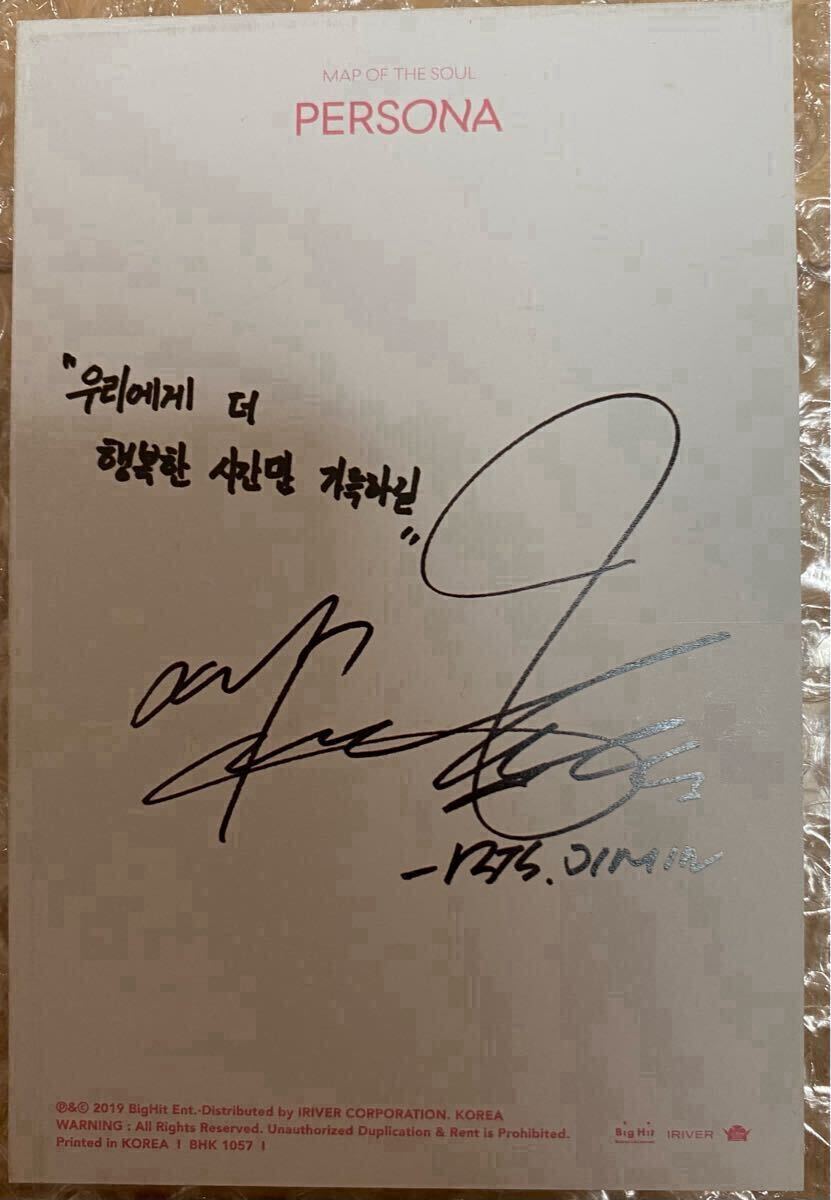 MAP OF THE SOUL
PERSONA
"우리에게 더
행복한 시간만 가득하길"
-BTS. JIMIN
℗&© 2019 BigHit Ent.·Distributed by IRIVER CORPORATION. KOREA
WARNING : All Rights Reserved. Unauthorized Duplication & Rent is Prohibited.
Printed in KOREA I BHK 1057 I
Big Hit IRIVER